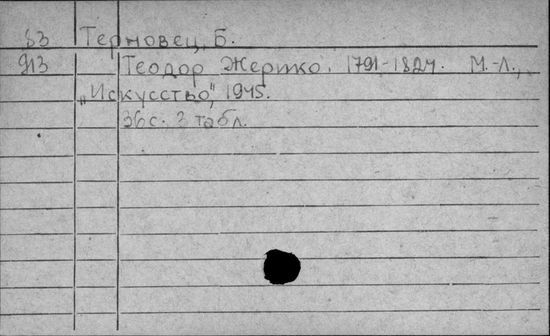 83 Терновец, Б.
913 Теодор Жерико. 1791-1824. М.-Л.,
„Искусство", 1945.
36 с. 3 табл.